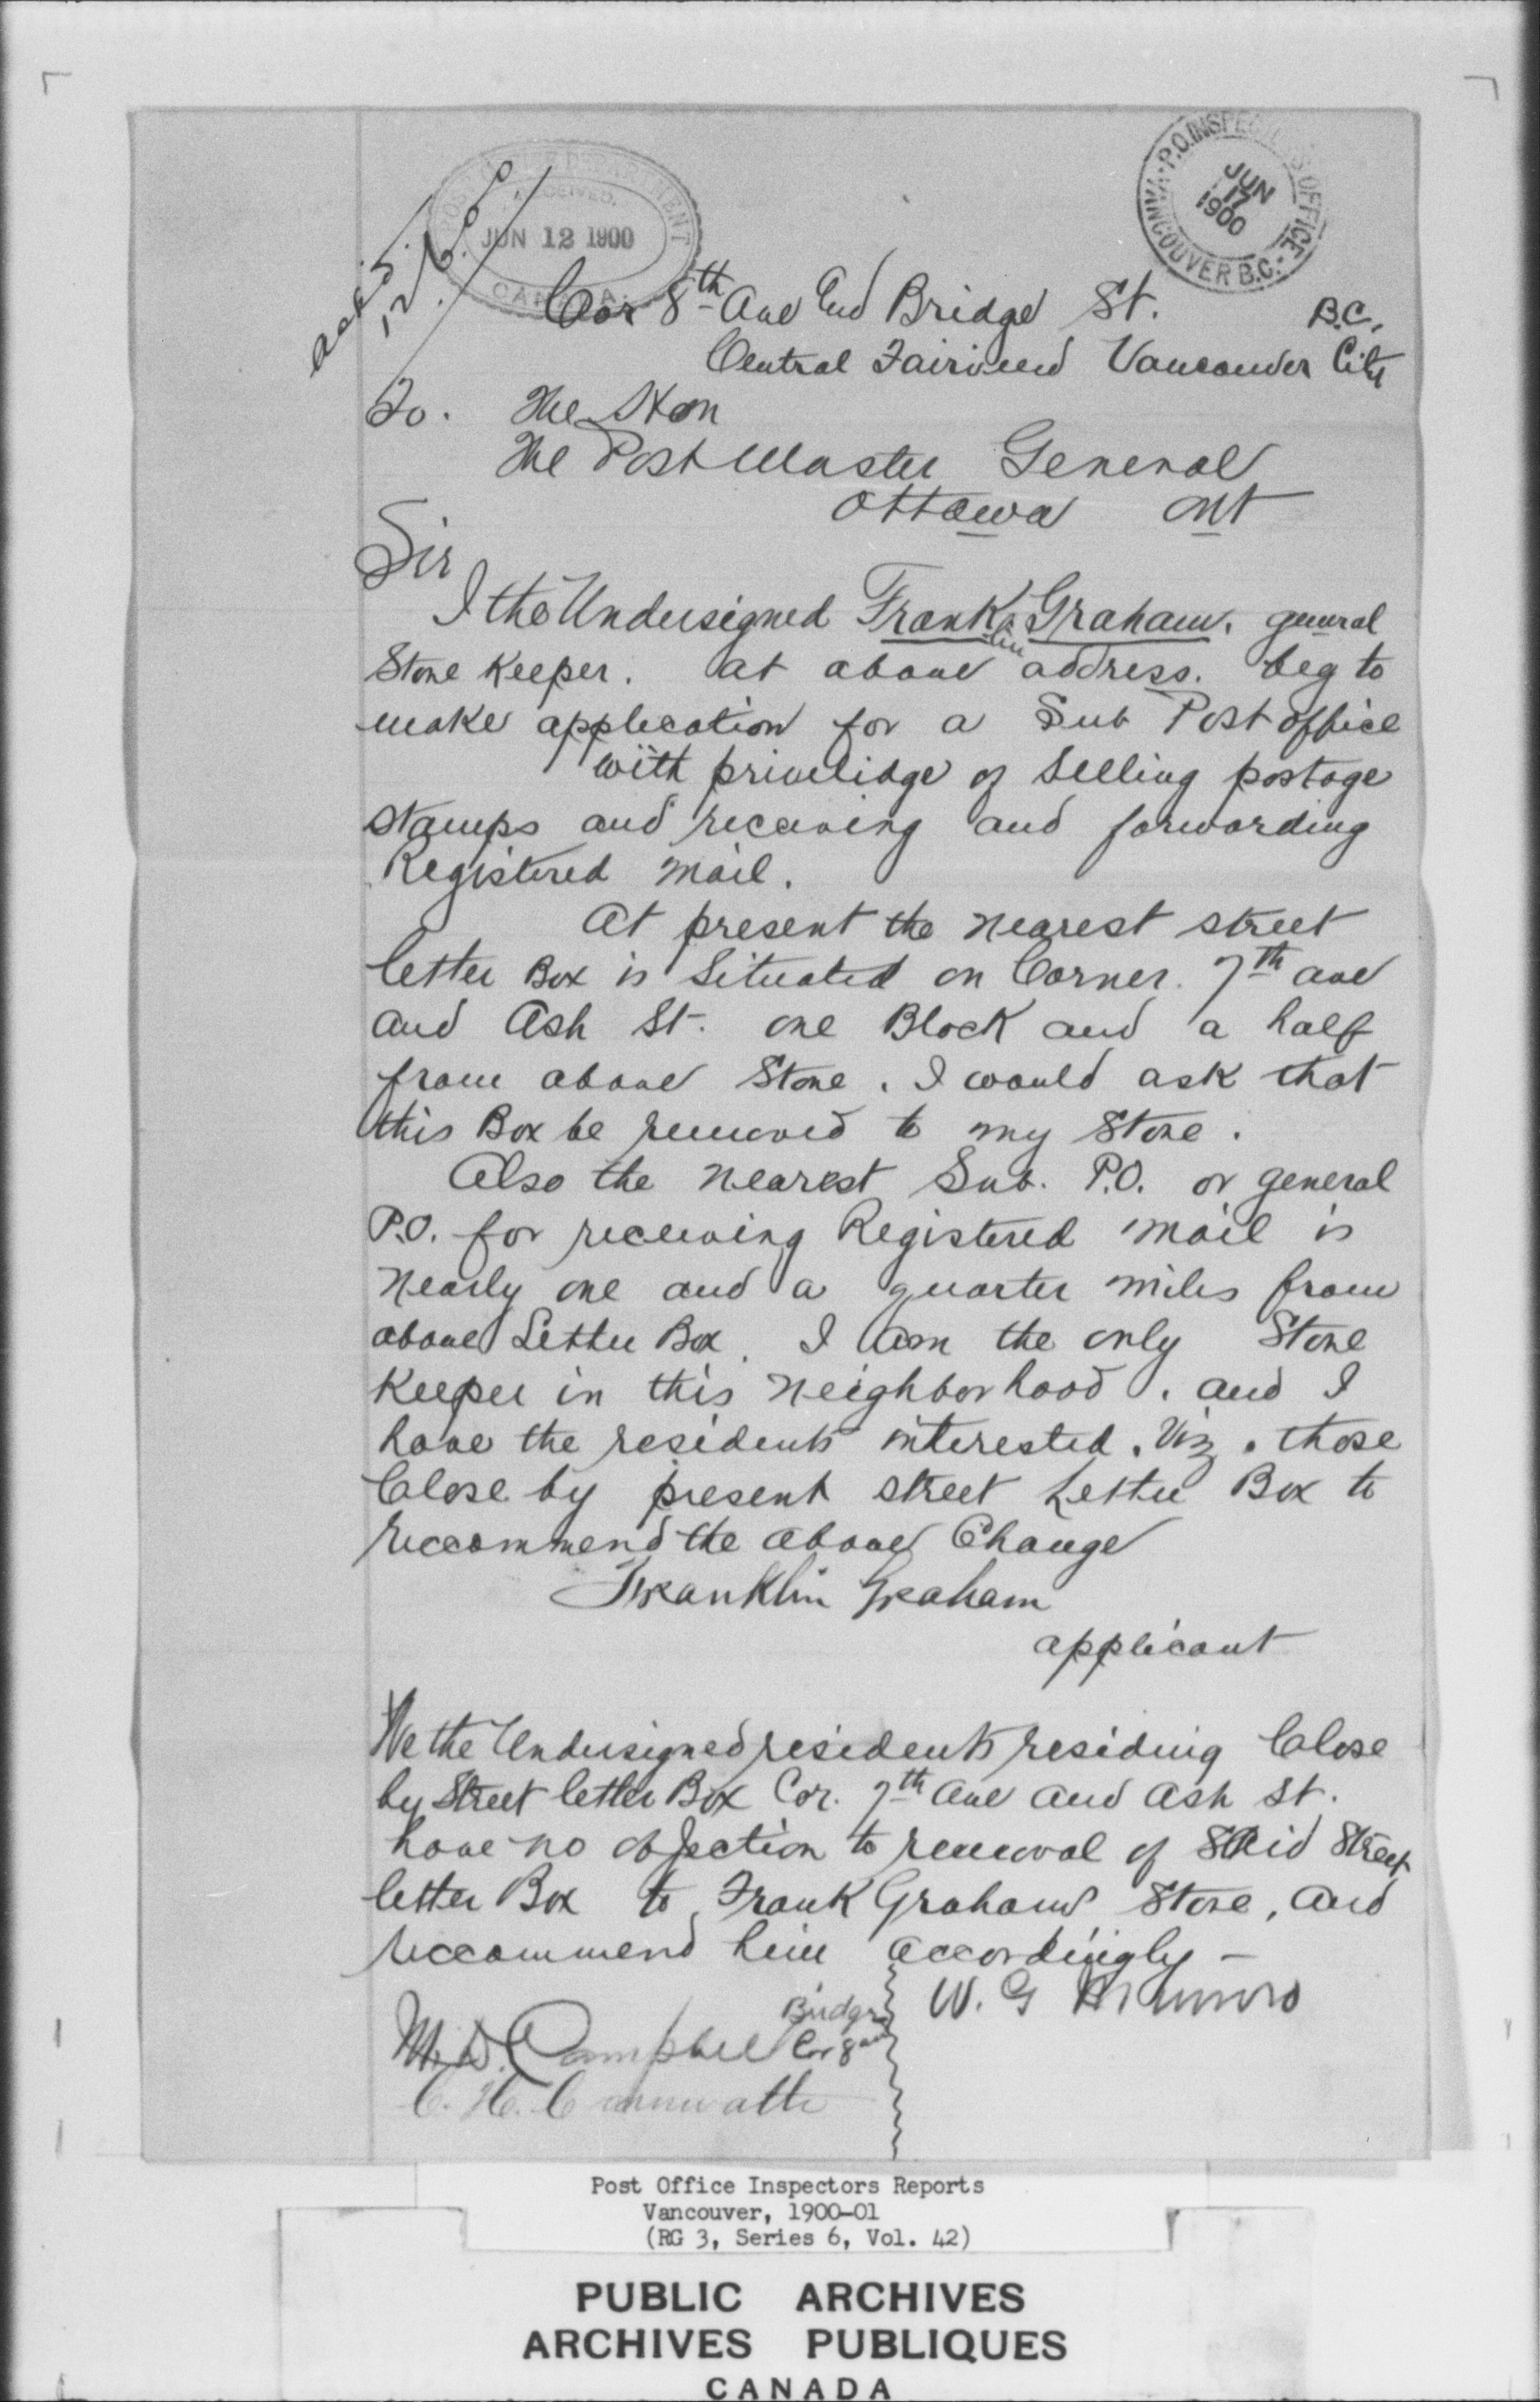 JUN 12 1900
P.O. INSPECTOR'S OFFICE
VANCOUVER B.C.
JUN
17
1900
Ack'd.
12/6.00
Cor 8th Ave and Bridge St. B.C.
Central Fairview Vancouver City
To. The Hon
The Post Master General
Ottawa Ont
Sir
I the Undersigned Franklin Graham. general
Store Keeper. at above address. beg to
make application for a Sub Post office
with privelidge of Selling postage
stamps and receiving and forwarding
Registered Mail.
At present the nearest street
letter Box is Situated on Corner. 7th ave
and Ash St. one Block and a half
from above Store. I would ask that
this Box be removed to my Store.
Also the nearest Sub. P.O. or general
P.O. for receiving Registered mail is
nearly one and a quarter miles from
above Letter Box. I am the only Store
Keeper in this Neighborhood. and I
have the residents interested. Viz. those
Close by present street Letter Box to
reccommend the above Change
Franklin Graham
applicant
We the Undersigned residents residing Close
by Street letter Box Cor. 7th Ave and Ash St.
have no objection to removal of Said Street
letter Box to Frank Grahams Store, and
reccommend him accordingly —
M. D. Campbell Bridge W. G Munro
Cor 8 ave
C. H.
Post Office Inspectors Reports
Vancouver, 1900-01
(RG 3, Series 6, Vol. 42)
PUBLIC ARCHIVES
ARCHIVES PUBLIQUES
CANADA